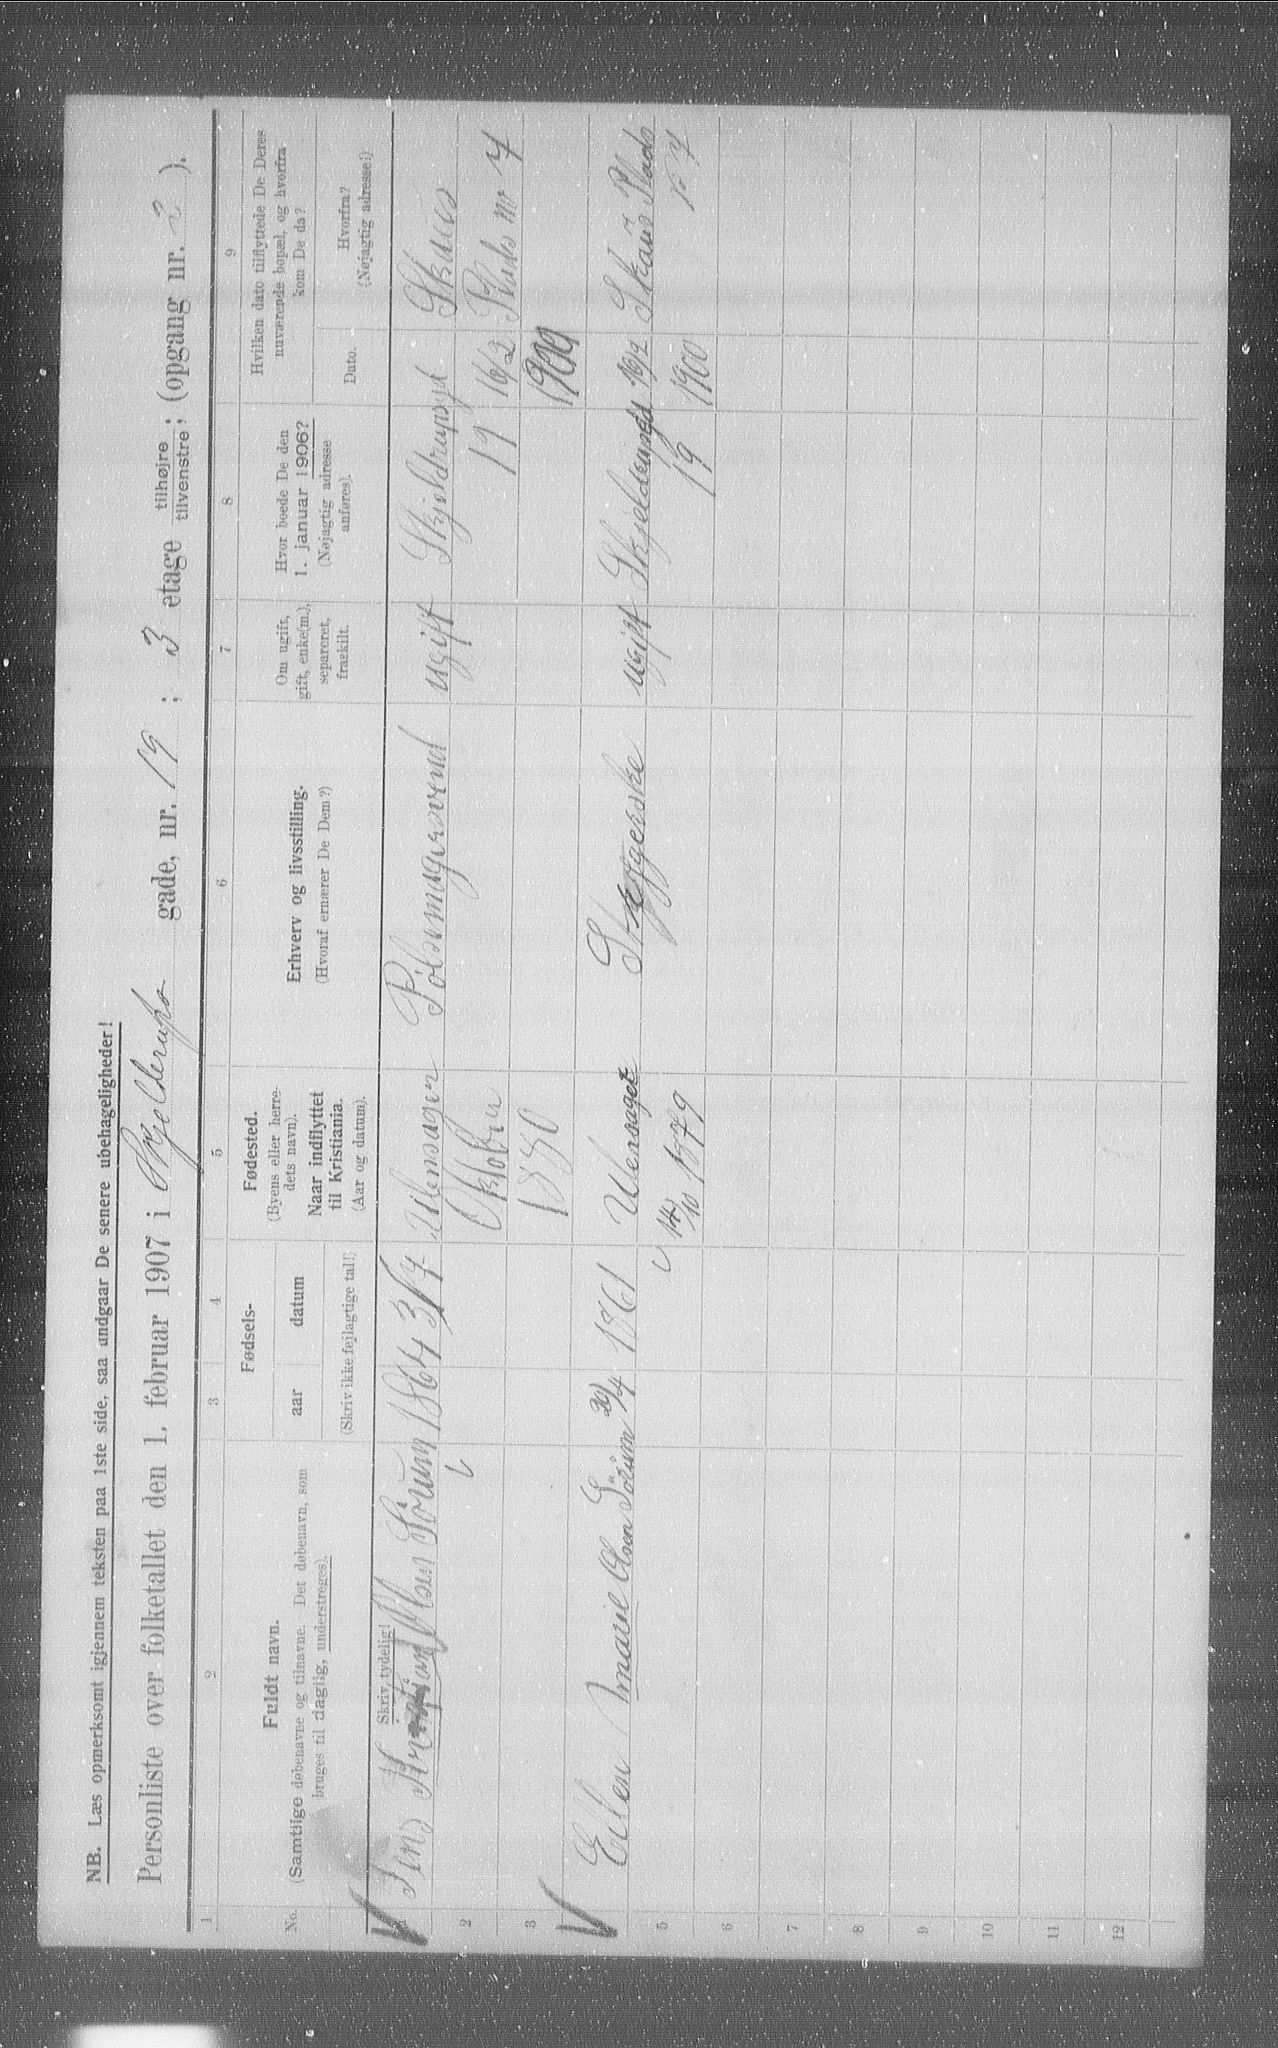 NB. Læs opmerksomt igjennem teksten paa 1ste side, saa undgaar De senere ubehageligheder!
Personliste over folketallet den 1. februar 1907 i Skjelderups gade, nr. 19 ; 3 etage tilhøjre ; tilvenstre ; (opgang nr. 2 ).
1 2 3 4 5 6 7 8 9
No.
Fuldt navn.
(Samtlige døbenavne og tilnavne. Det døbenavn, som
bruges til daglig, understreges).
Skriv tydelig!
Fødsels-
aar datum
(Skriv ikke fejlagtige tal!)
Fødested.
(Byens eller herre-
dets navn).
Naar indflyttet
til Kristiania.
(Aar og datum).
Erhverv og livsstilling.
(Hvoraf ernærer De Dem?)
Om ugift,
gift, enke(m.),
separeret,
fraskilt.
Hvor boede De den
1. januar 1906?
(Nøjagtig adresse
anføres).
Hvilken dato tilflyttede De Deres
nuværende bopæl, og hvorfra
kom De da?
Dato.
Hvorfra?
(Nøjagtig adresse!)
1 Jens Kristian Olsen Sörum 1864 3/7 Ullensager Pölsemagersvend ugift Skjeldrupsgd Skaus
2 Oktober 19 16/2 Plads no 7
3 1880 1900
Ellen Marie Olsen Sörum 20/4 1861 Ulensaget Skreggerske ugift Skjelderupsgd 16/2 Skaus Plads
5 14/10 1879 19 1900 no 7
6
7
8
9
10
11
12